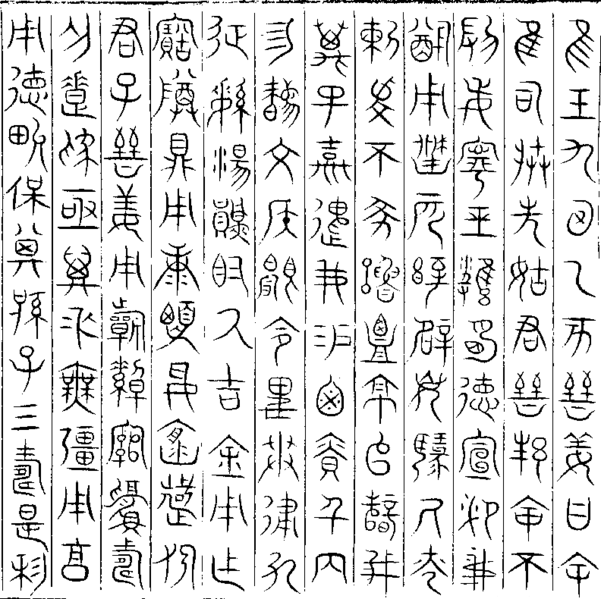 隹王九月乙亥晉姜曰余
隹司朕先姑君晉邦余不
叚妄寧巠雝明德宣卲我
猷用召匹辝辟每揚厥光
剌虔不墜魯覃京師辥我
萬民嘉遣我易鹵積千兩
勿廢文侯顯令卑貫通弘
征繁湯原取厥吉金用乍
寶尊鼎用康柔妥懷遠邇
君子晉姜用祈綽綰眉壽
乍疐為亟萬年無疆用享
用德畯保其孫子三壽是利